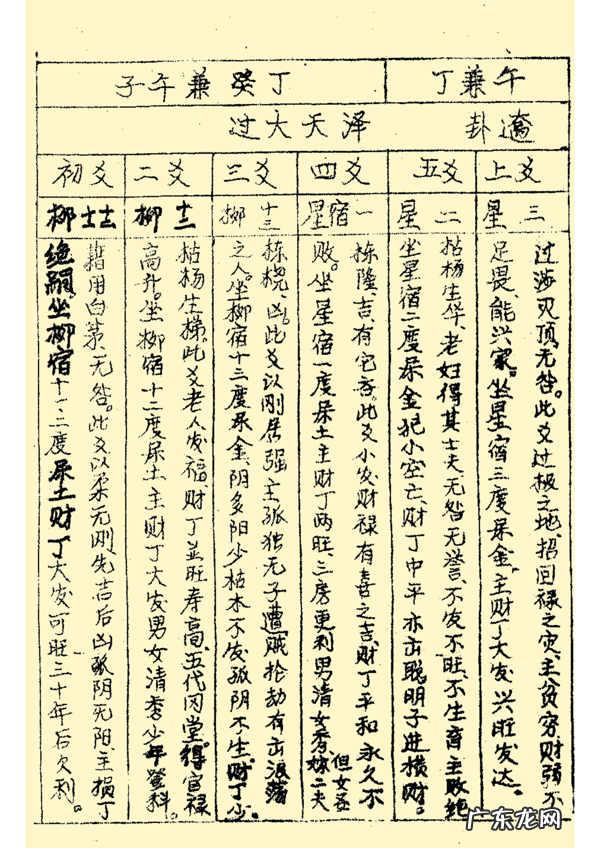 午兼丁
丁癸兼午子
卦
泽天大过
上爻
星三
过涉灭顶,无咎。此爻过极之地,招回禄之灾,主贫穷财弱不
足畏,能兴家。坐星宿三度屎金,主财丁大发,兴旺发达。
五爻
星二
拈杨生华,老妇得其士夫,无咎无誉,不发不旺,不生育主败绝
坐星宿二度屎金犯小空亡,财丁中平亦出聪明子进横财。
四爻
星宿一
栋隆,吉,有它吝。此爻小发,财禄有喜之吉,财丁平和永久不
败。坐星宿一度屎土主财丁两旺,三房更利男清女秀,但女
嫁二夫
三爻
柳十三
栋桡,凶。此爻以刚居强主孤独无子遭贼抢劫有出浪荡
之人。坐柳宿十三度屎金,阴多阳少枯木不发,孤阴不生。财丁少。
二爻
柳十二
拈杨生梯。此爻老人发福,财丁並旺寿高,五代同堂。得官禄
高升。坐柳宿十二度屎土主财丁大发男女清秀少年登科。
初爻
柳
藉用白茅,无咎。此爻以柔无刚先吉后凶,孤阴无阳,主损丁
绝嗣,坐柳宿十一、二度屎土财丁大发可旺三十年后欠利。
广东龙网